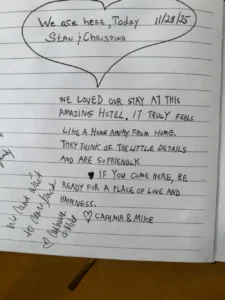 We are here, Today 11/28/25
Stan & Christina
WE LOVED OUR STAY AT THIS
AMAZING HOTEL. IT TRULY FEELS
LIKE A HOME AWAY FROM HOME.
THEY THINK OF THE LITTLE DETAILS
AND ARE SO FRIENDLY.
♥ IF YOU COME HERE, BE
READY FOR A PLACE OF LOVE AND
HAPPINESS.
♡ CASHMIR & MIKE
We cant wait
to come back
♡ Cashmir
& Mike